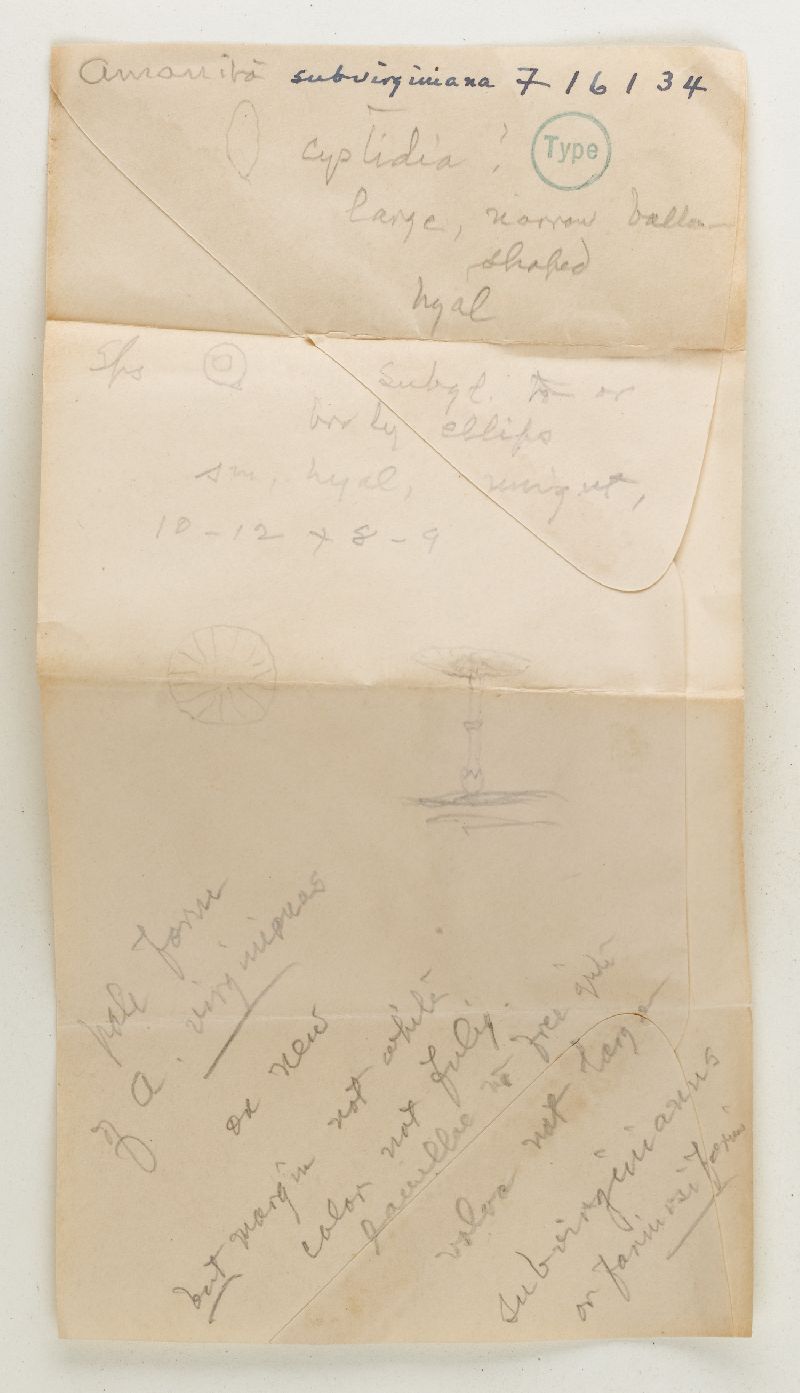 Amanita subvirginiana 7 16 1 34
cystidia ! Type
large, narrow balloon
shaped
hyal
Sps subgl. to or
brdly ellips
sm, hyal, unigut,
10-12 x 8-9
pale form
of A. virginianus
or new
but margin not white
color not fulig.
lamellae not free
volva not large
subvirginianus
or farinosiformis